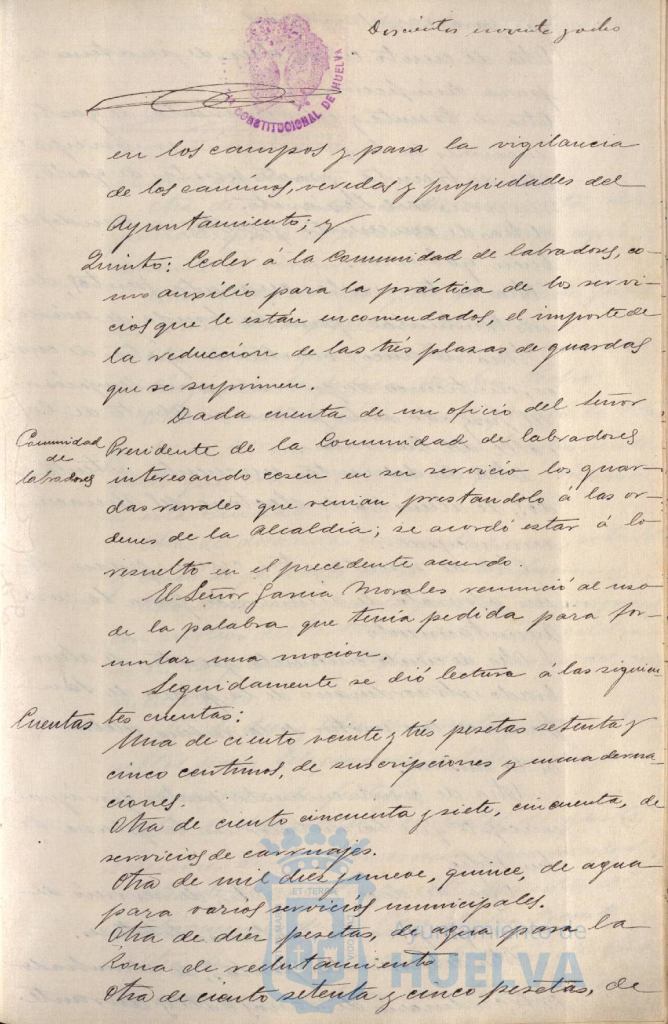 Doscientos noventa y ocho
CONSTITUCIONAL DE HUELVA
en los campos y para la vigilancia
de los caminos, veredas y propiedades del
Ayuntamiento; y
Quinto: Ceder á la Comunidad de labradores, co-
mo auxilio para la práctica de los servi-
cios que le están encomendados, el importe de
la reducción de las tres plazas de guardas
que se suprimen.
Dada cuenta de un oficio del Señor
Comunidad
de
labradores
Presidente de la Comunidad de labradores
interesando cesen en su servicio los guar-
das rurales que venian prestandolo á las or-
denes de la Alcaldia; se acordó estar á lo
resuelto en el precedente acuerdo.
El Señor Garcia Morales renunció al uso
de la palabra que tenía pedida para for-
mular una moción.
Seguidamente se dió lectura á las siguien-
Cuentas
tes cuentas:
Una de ciento veinte y tres pesetas setenta y
cinco centimos, de suscripciones y encuaderna-
ciones.
Otra de ciento cincuenta y siete, cincuenta, de
servicios de carruajes.
Otra de mil diez y nueve, quince, de agua
para varios servicios municipales.
Otra de diez pesetas, de agua para la
Zona de reclutamiento
Otra de ciento setenta y cinco pesetas, de
Ayuntamiento de
HUELVA